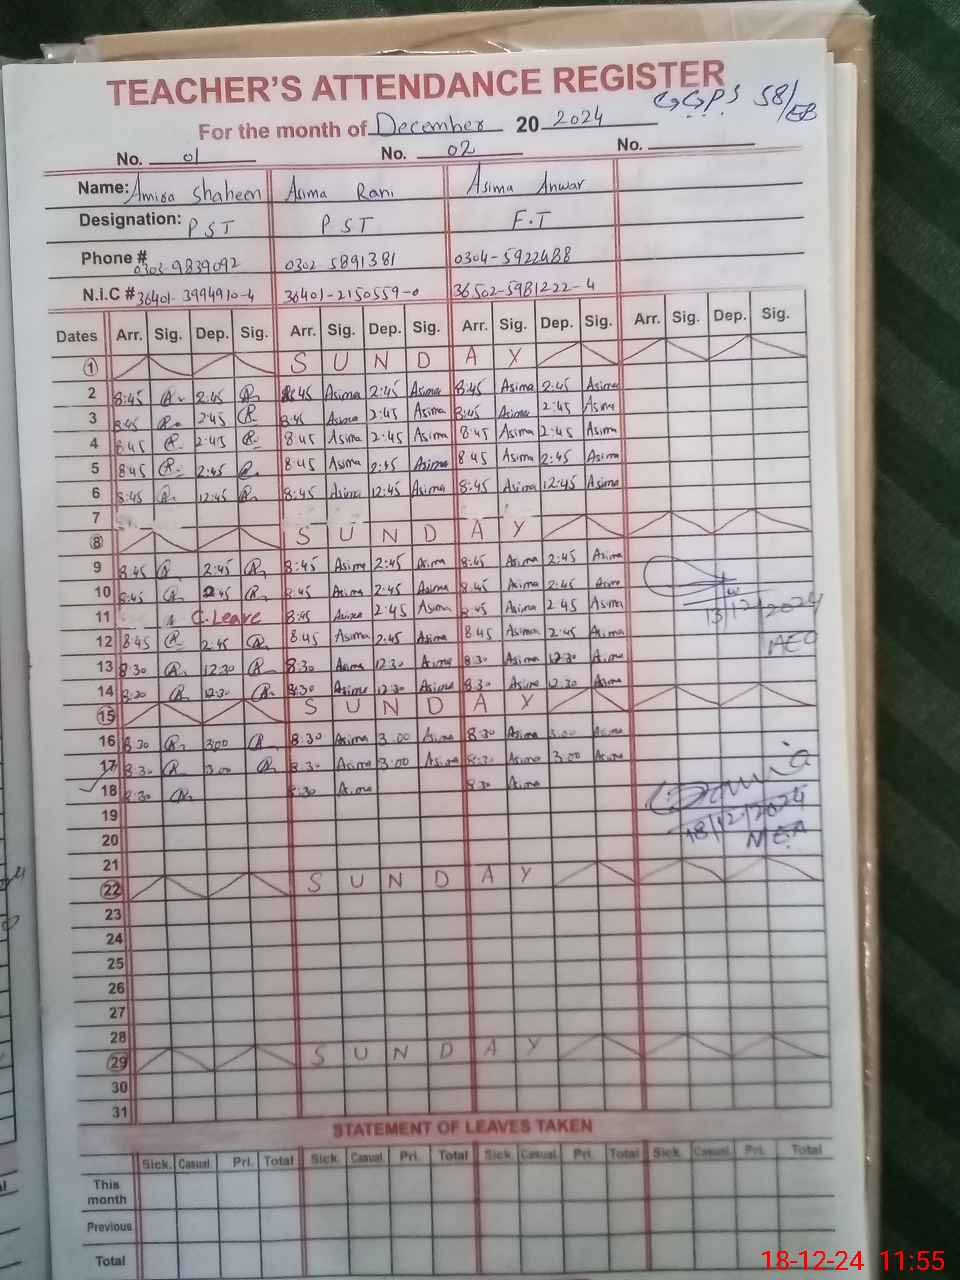 TEACHER'S ATTENDANCE REGISTER
G.G.P.S 58/EB
For the month of December 20 2024
No. 01 No. 02 No.
Name: Amira Shaheen Asima Rani Asima Anwar
Designation: PST PST F.T
Phone # 0303 9839092 0302 5891381 0304-5922488
N.i.C # 36401-3994910-4 36401-2150559-0 36502-5981222-4
Dates Arr. Sig. Dep. Sig. Arr. Sig. Dep. Sig. Arr. Sig. Dep. Sig. Arr. Sig. Dep. Sig.
1 S U N D A Y
2 8:45 2:45 8:45 Asima 2:45 Asima 8:45 Asima 2:45 Asima
3 8:45 2:45 8:45 Asima 2:45 Asima 8:45 Asima 2:45 Asima
4 8:45 2:45 8:45 Asima 2:45 Asima 8:45 Asima 2:45 Asima
5 8:45 2:45 8:45 Asima 2:45 Asima 8:45 Asima 2:45 Asima
6 8:45 12:45 8:45 Asima 12:45 Asima 8:45 Asima 12:45 Asima
7
8 S U N D A Y
9 8:45 2:45 8:45 Asima 2:45 Asima 8:45 Asima 2:45 Asima
10 8:45 2:45 8:45 Asima 2:45 Asima 8:45 Asima 2:45 Asima
11 C.Leave 8:45 Asima 2:45 Asima 8:45 Asima 2:45 Asima
13/12/2024
12 8:45 2:45 8:45 Asima 2:45 Asima 8:45 Asima 2:45 Asima
AEO
13 8:30 12:30 8:30 Asima 12:30 Asima 8:30 Asima 12:30 Asima
14 8:30 12:30 8:30 Asima 12:30 Asima 8:30 Asima 12:30 Asima
15 S U N D A Y
16 8:30 3:00 8:30 Asima 3:00 Asima 8:30 Asima 3:00 Asima
17 8:30 3:00 8:30 Asima 3:00 Asima 8:30 Asima 3:00 Asima
18 8:30 8:30 Asima 8:30 Asima
19
18/12/2024
20
MEA
21
22 S U N D A Y
23
24
25
26
27
28
29 S U N D A Y
30
31
STATEMENT OF LEAVES TAKEN
Sick. Casual. Pri. Total Sick. Casual. Pri. Total Sick. Casual. Pri. Total Sick. Casual. Pri. Total
This month
Previous
Total
18-12-24 11:55